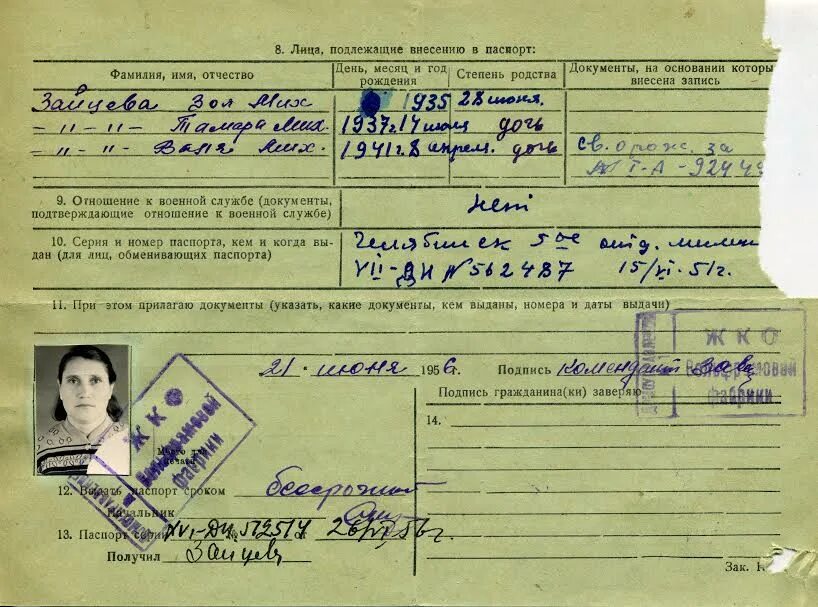 8. Лица, подлежащие внесению в паспорт:
Фамилия, имя, отчество
День, месяц и год рождения
Степень родства
Документы, на основании которы
внесена запись
Зайцева Зоя Мих 1935 28 июня.
— 〃 — 〃 — Тамара Мих. 1937г. 14 июля дочь
— 〃 — 〃 — Валя Мих. 1941г. 8 апрел. дочь св. о рожд. за
9. Отношение к военной службе (документы,
подтверждающие отношение к военной службе)
нет
10. Серия и номер паспорта, кем и когда вы-
дан (для лиц, обменивающих паспорта)
Челябинск 5ое отд. милиц
VII-ДИ № 562487 15/VI-51г.
11. При этом прилагаю документы (указать, какие документы, кем выданы, номера и даты выдачи)
21 · июня 1956г. Подпись
Подпись гражданина(ки) заверяю
ЖКО
фабрики
ЖКО
фабрики
14.
12. Выдать паспорт сроком бессрочной
Начальник
13. Паспорт серии XVI-ДИ № 512514 от
Получил Зайцев
Зак.